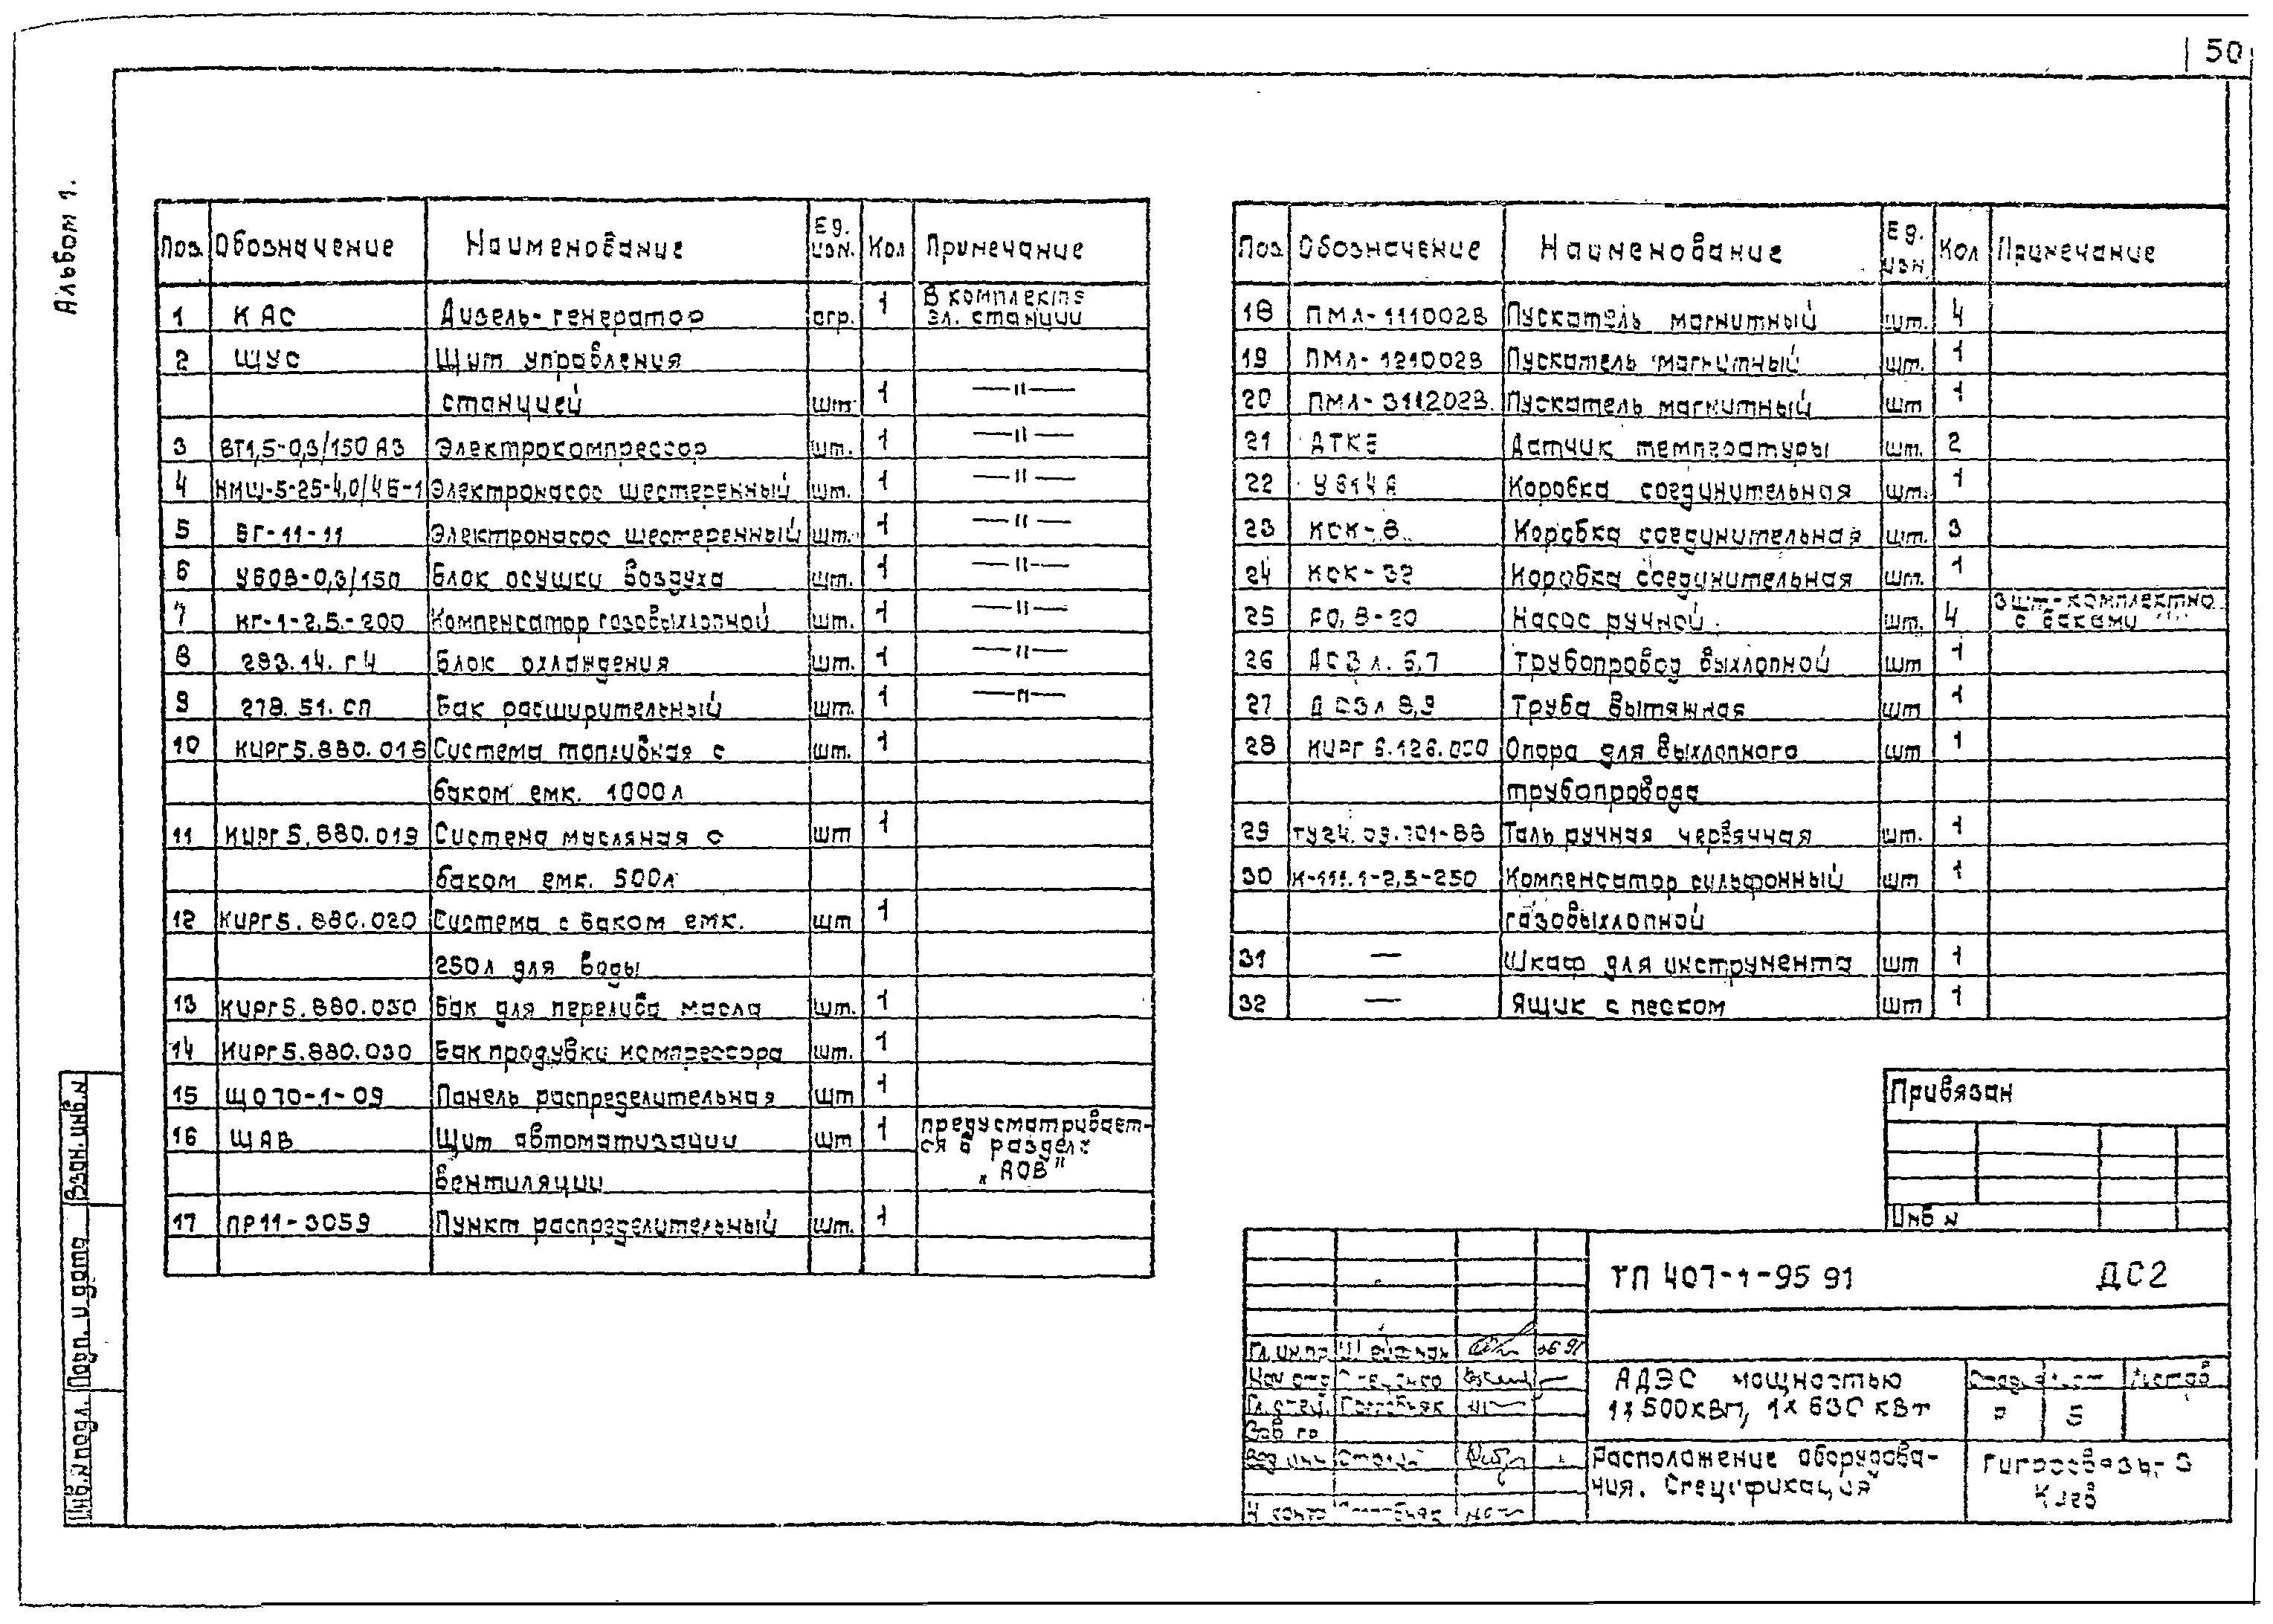 50
Альбом 1.
Поз. Обозначение Наименование Ед. изм. Кол Примечание
1 КАС Дизель-генератор агр. 1 В комплекте эл. станции
2 ЩУС Щит управления
станцией шт. 1 —"—
3 ВТ1,5-0,3/150 А3 Электрокомпрессор шт. 1 —"—
4 НМШ-5-25-4,0/4Б-1 Электронасос шестеренный шт. 1 —"—
5 БГ-11-11 Электронасос шестеренный шт. 1 —"—
6 УБОВ-0,3/150 Блок осушки воздуха шт. 1 —"—
7 КГ-1-2,5-200 Компенсатор газовыхлопной шт. 1 —"—
8 293.14.Г4 Блок охлаждения шт. 1 —"—
9 278.51.СП Бак расширительный шт. 1 —"—
10 КИРГ5.880.018 Система топливная с шт. 1
баком емк. 1000л
11 КИРГ5.880.019 Система масляная с шт 1
баком емк. 500л
12 КИРГ5.880.020 Система с баком емк. шт 1
250л для воды
13 КИРГ5.880.050 Бак для перелива масла шт. 1
14 КИРГ5.880.030 Бак продувки компрессора шт. 1
15 ЩО70-1-09 Панель распределительная шт 1
16 ЩАВ Щит автоматизации шт 1 предусматривает-
ся в разделе
вентиляции „АОВ"
17 ПР11-3059 Пункт распределительный шт. 1
Поз. Обозначение Наименование Ед. изм. Кол Примечание
18 ПМЛ-111002В Пускатель магнитный шт. 4
19 ПМЛ-121002В Пускатель магнитный шт. 1
20 ПМЛ-311202В Пускатель магнитный шт 1
21 ДТКБ Датчик температуры шт. 2
22 У614А Коробка соединительная шт. 1
23 КСК-8 Коробка соединительная шт. 3
24 КСК-32 Коробка соединительная шт. 1
25 РО,8-20 Насос ручной шт. 4 3шт-комплектно с баками
26 ДС3 л. 6,7 Трубопровод выхлопной шт 1
27 ДС3 л 8,9 Труба вытяжная шт 1
28 КИРГ 6.126.000 Опора для выхлопного шт 1
трубопровода
29 ТУ24.09.701-88 Таль ручная червячная шт. 1
30 К-111.1-2,5-250 Компенсатор сильфонный шт 1
газовыхлопной
31 — Шкаф для инструмента шт 1
32 — Ящик с песком шт 1
Привязан
Инв №
ТП 407-1-95 91 ДС2
Гл.инж.пр 06 91
Нач отд
Гл.спец.
Вед инж
Н контр
АДЭС мощностью
1х500кВт, 1х630 кВт
Стадия Лист Листов
Р 5
Расположение оборудова-
ния. Спецификация
Гипросвязь-3
Киев
Взам. инв. №
Подп. и дата
Инв. № подл.